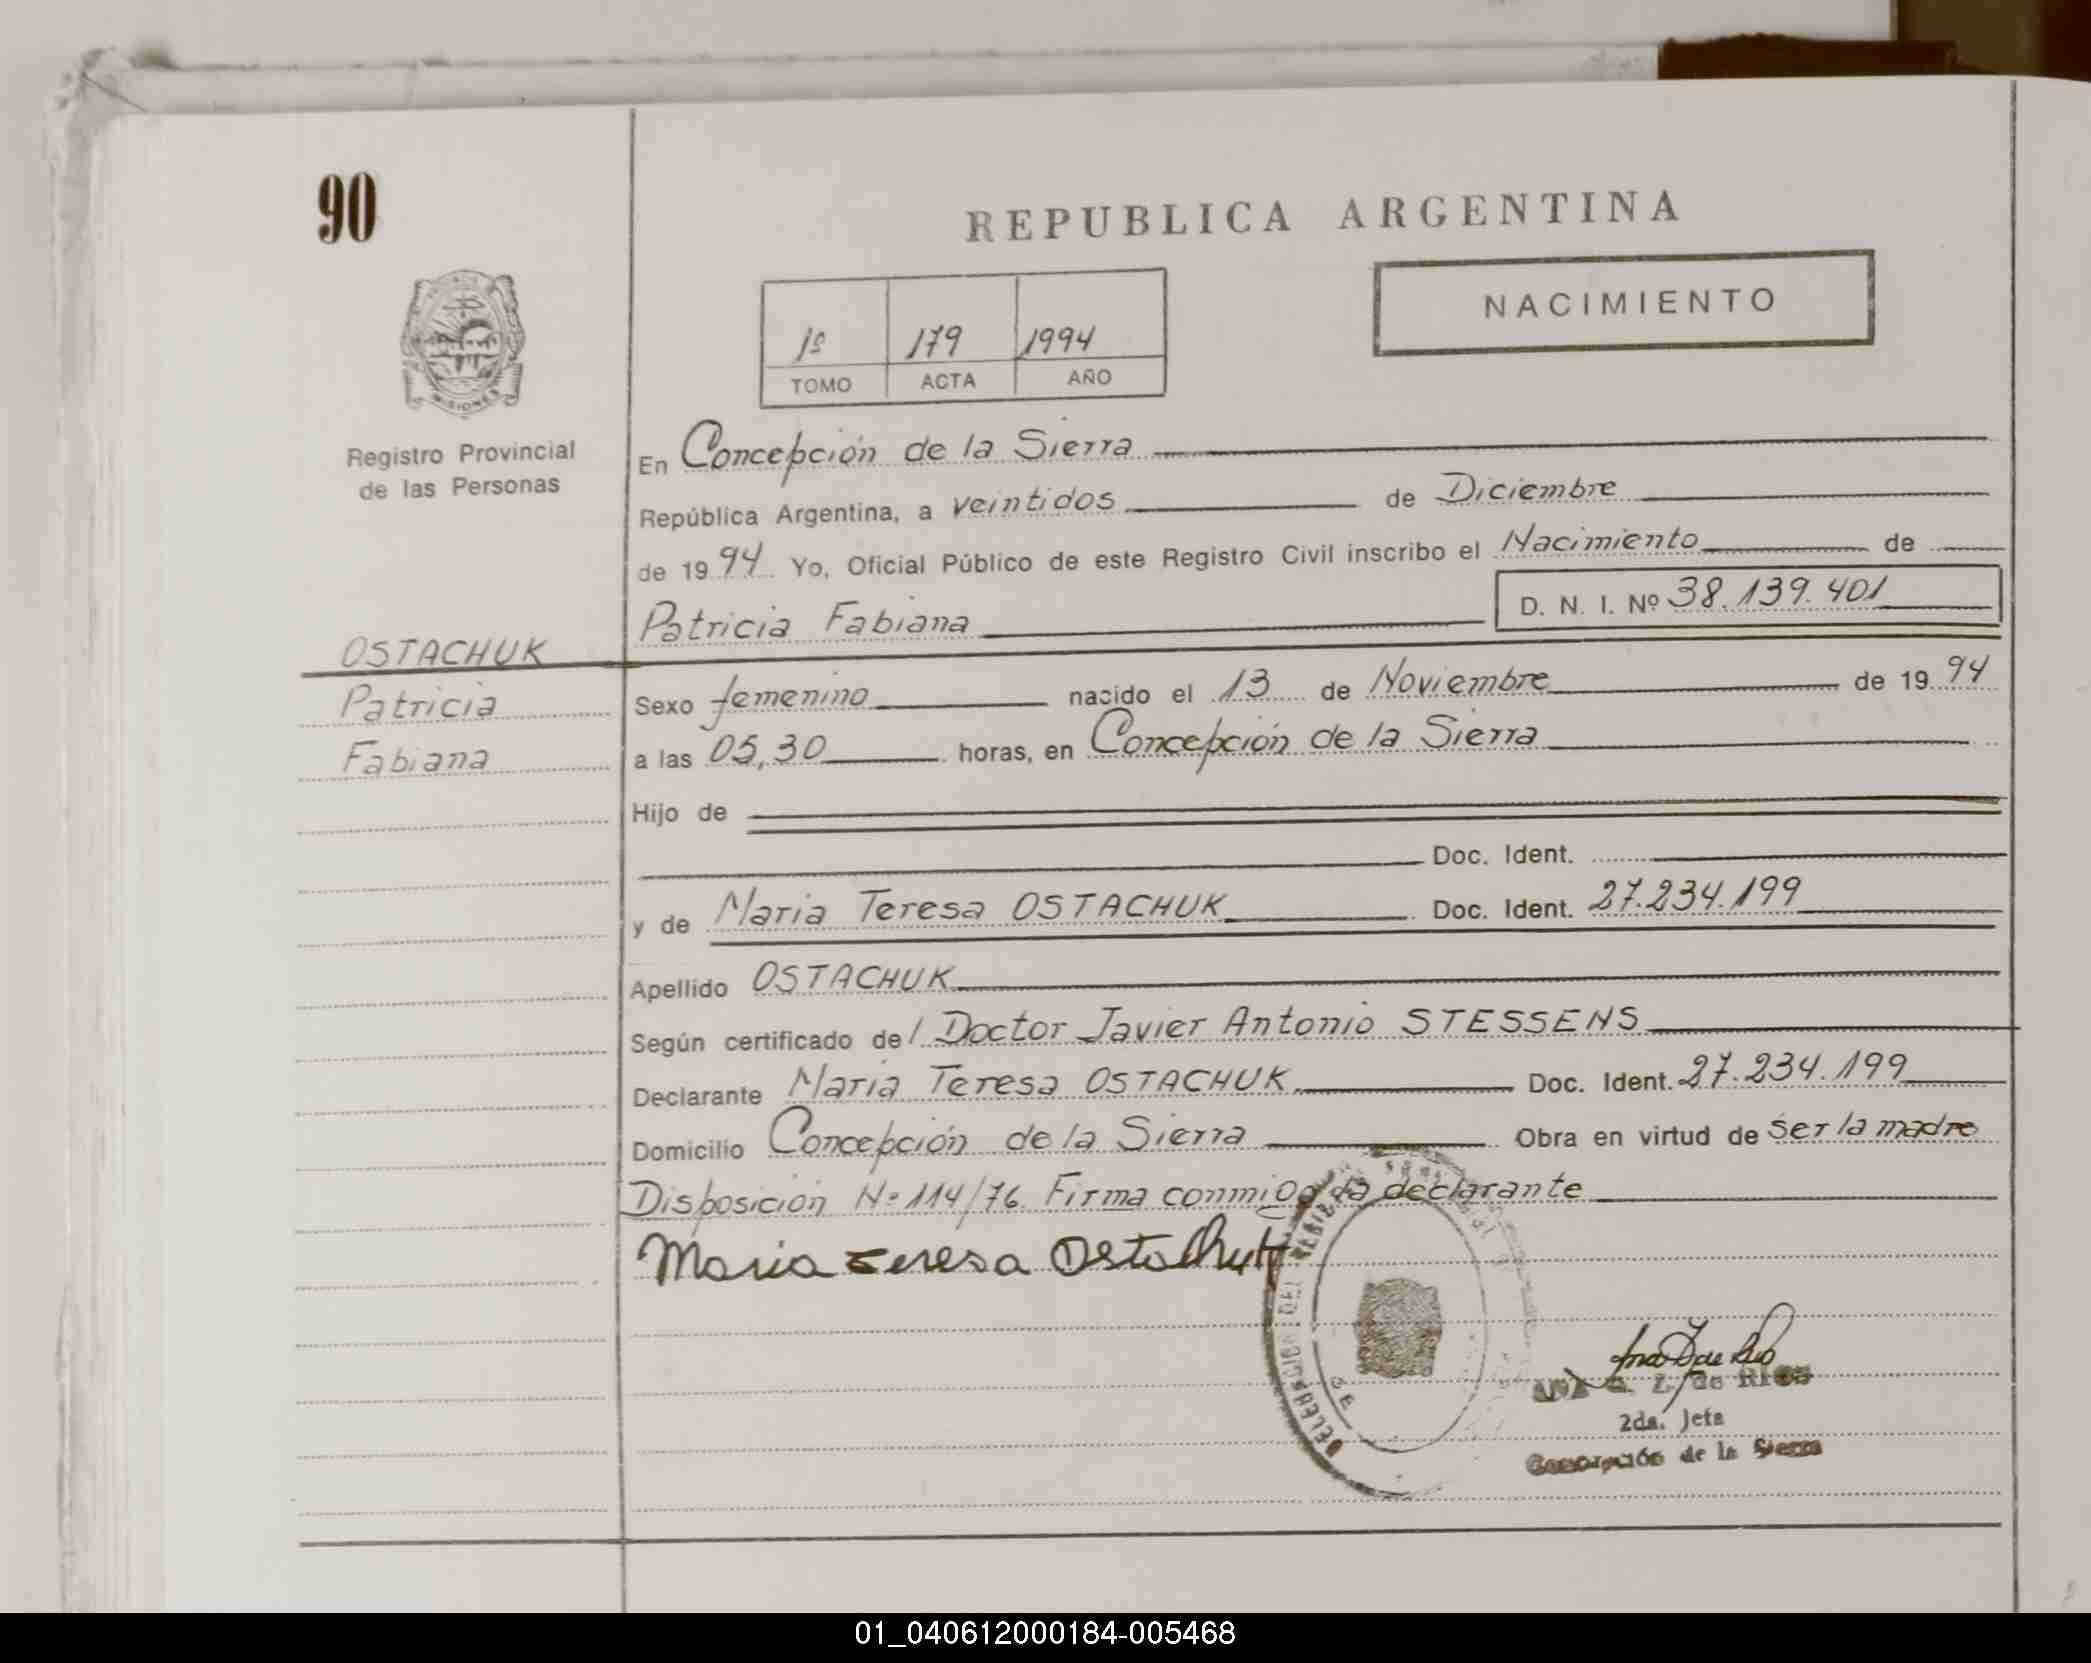 90
REPUBLICA ARGENTINA
NACIMIENTO
1º 179 1994
TOMO ACTA AÑO
MISIONES
Registro Provincial
de las Personas
En Concepción de la Sierra
República Argentina, a veintidos de Diciembre
de 1994 Yo, Oficial Público de este Registro Civil inscribo el Nacimiento de
Patricia Fabiana D. N. I. Nº 38.139.401
OSTACHUK
Patricia
Fabiana
Sexo femenino nacido el 13 de Noviembre de 1994
a las 05,30 horas, en Concepción de la Sierra
Hijo de
Doc. Ident.
y de Maria Teresa OSTACHUK Doc. Ident. 27.234.199
Apellido OSTACHUK
Según certificado del Doctor Javier Antonio STESSENS
Declarante Maria Teresa OSTACHUK Doc. Ident. 27.234.199
Domicilio Concepción de la Sierra Obra en virtud de ser la madre
Disposición Nº 114/76. Firma conmigo la declarante
Maria Teresa Ostachuk
de Rios
2da. Jefa
Concepción de la Sierra
01_040612000184-005468